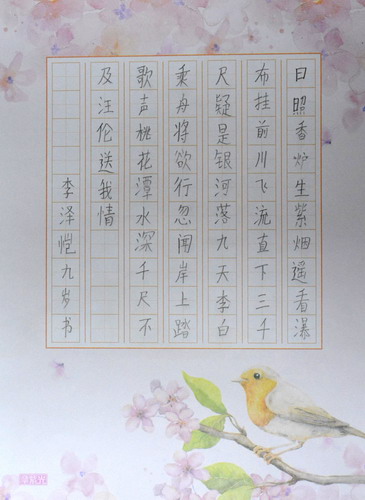 日照香炉生紫烟遥看瀑
布挂前川飞流直下三千
尺疑是银河落九天李白
乘舟将欲行忽闻岸上踏
歌声桃花潭水深千尺不
及汪伦送我情
李泽恺九岁书